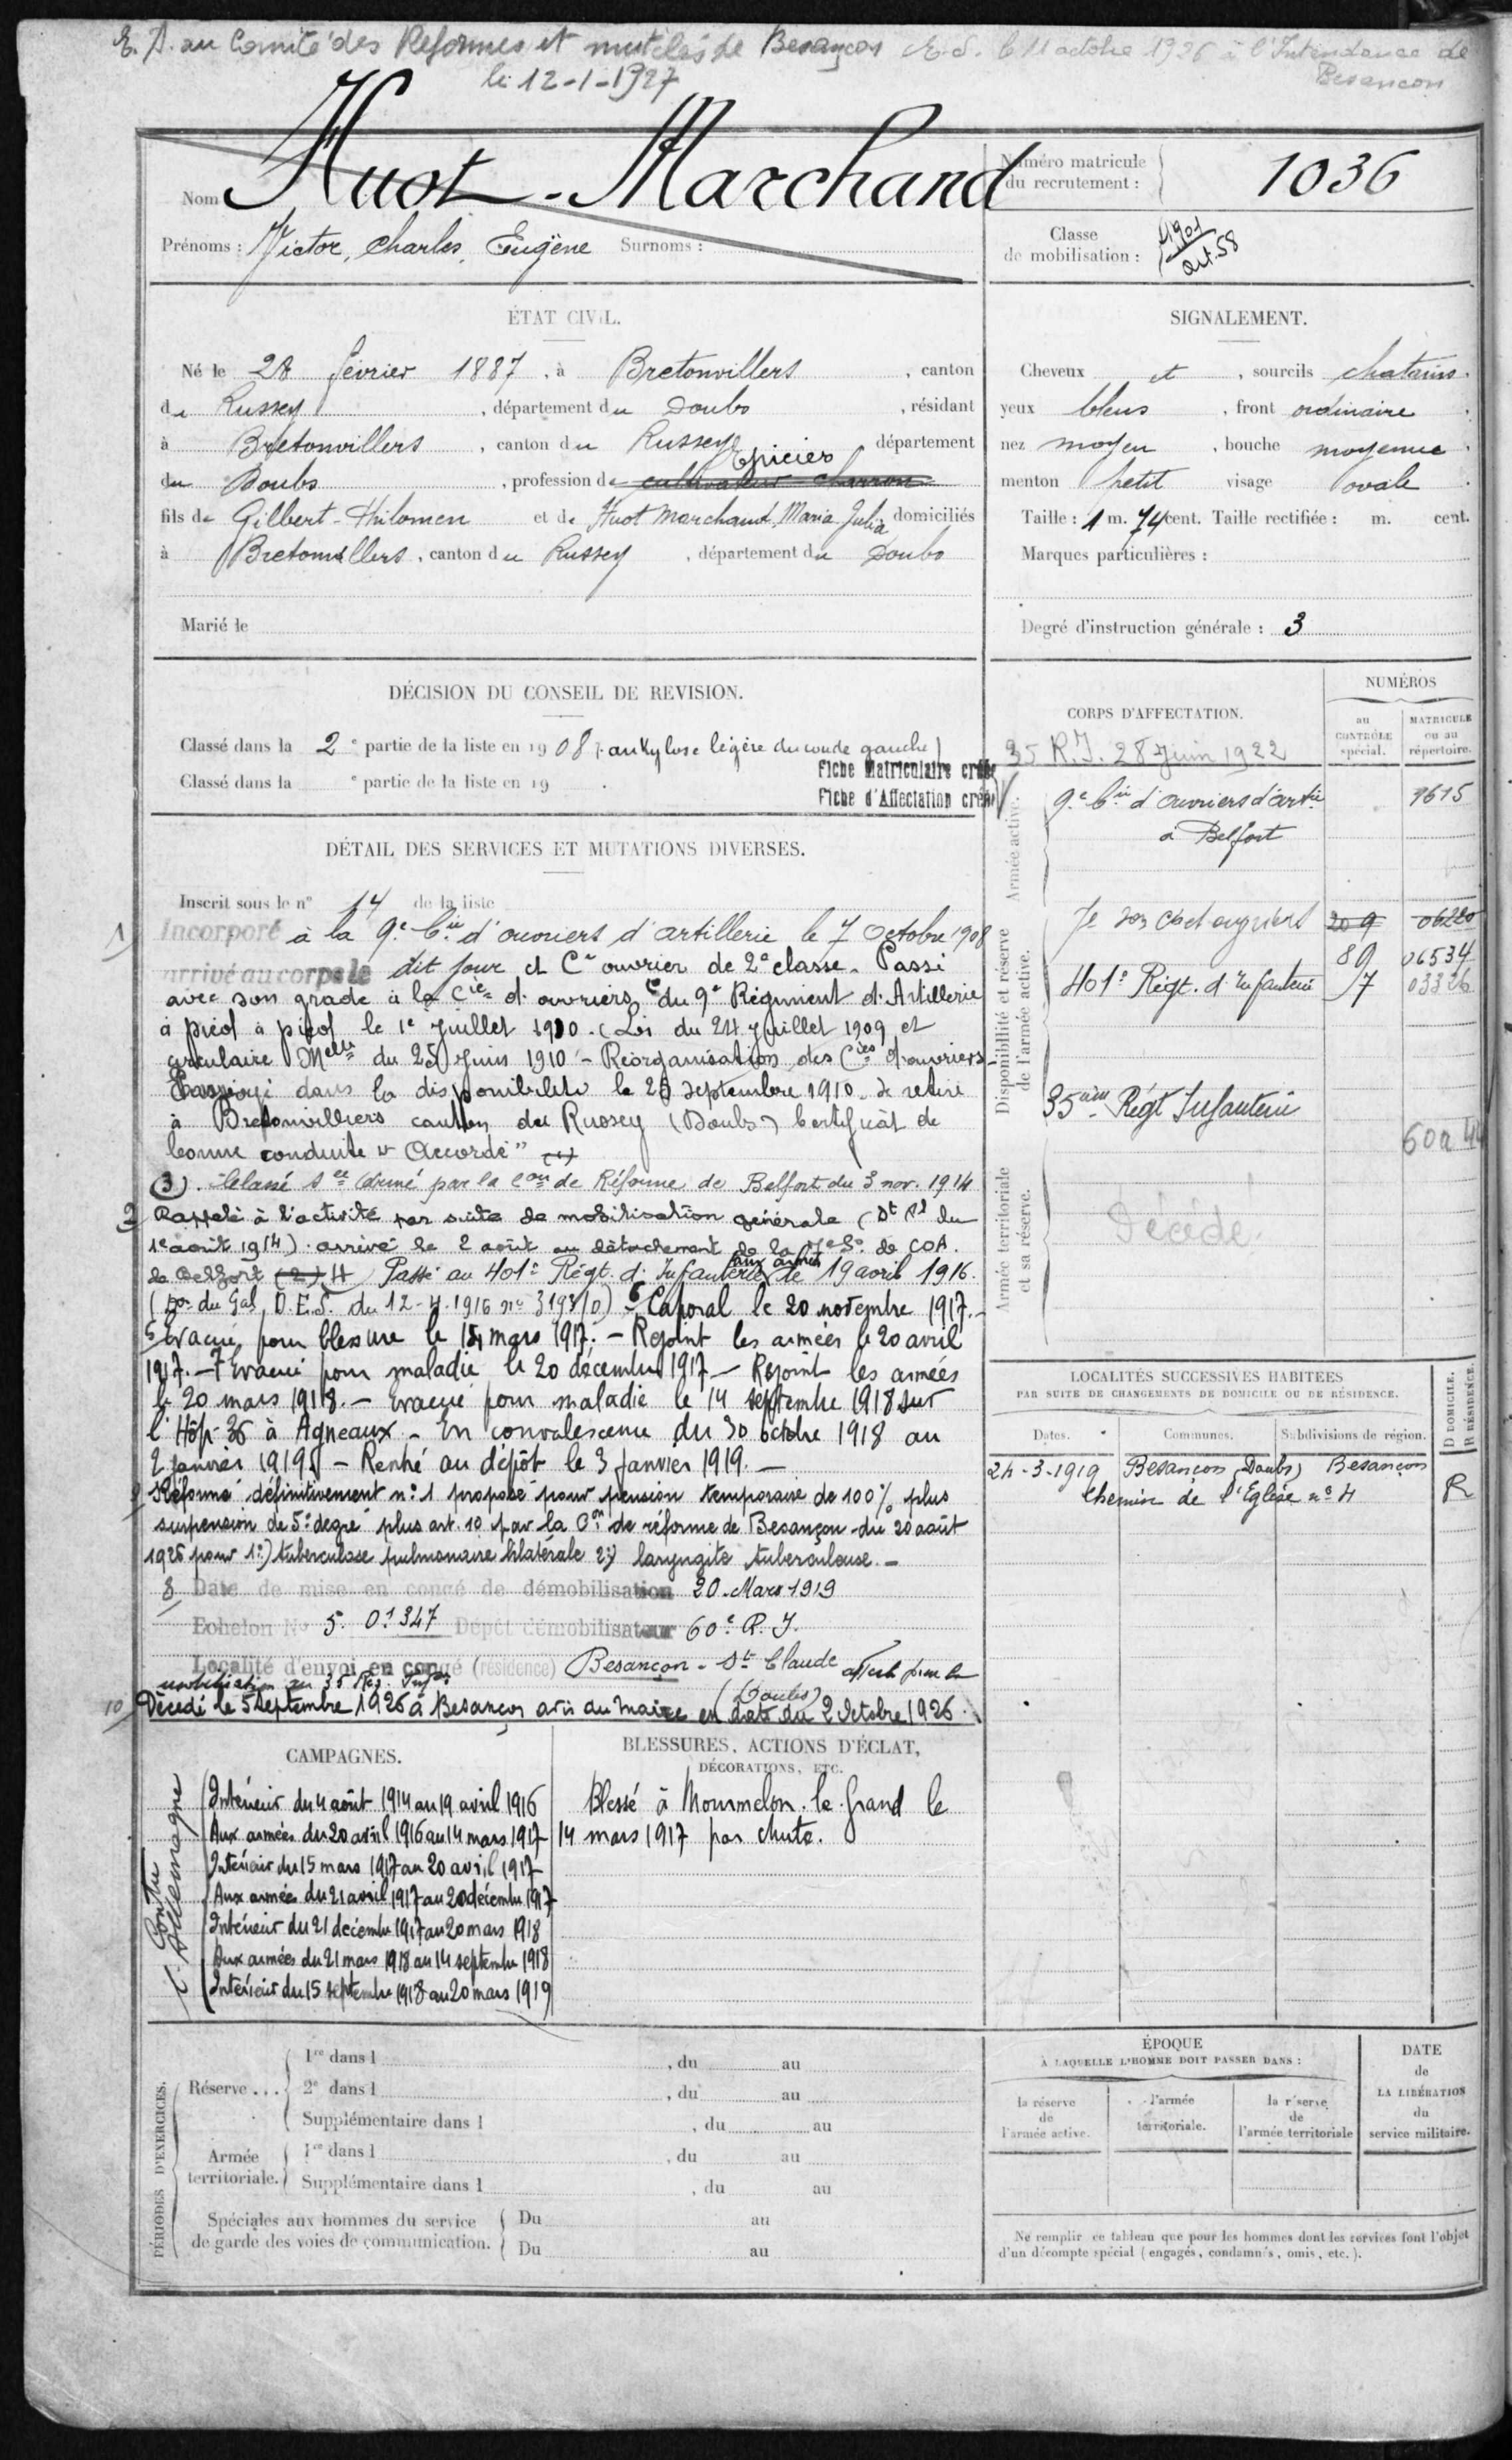 E. S. au Comité des Réformes et mutilés de Besançon E. S. le 11 octobre 1926 à l'Intendance de
le 12-1-1927 Besançon
Nom Huot-Marchand
Numéro matricule
du recrutement : 1036
Prénoms : Victor, Charles, Eugène Surnoms :
Classe
de mobilisation : 1901
art. 58
ÉTAT CIVIL.
Né le 28 février 1887, à Bretonvillers, canton
de Russey, département du Doubs, résidant
à Bretonvillers, canton du Russey département
Epicier
du Doubs, profession de cultivateur charron
fils de Gilbert-Philomen et de Huot Marchand, Maria Julia domiciliés
à Bretonvillers, canton du Russey, département du Doubs
Marié le
SIGNALEMENT.
Cheveux et, sourcils chatains.
yeux bleus, front ordinaire
nez moyen, bouche moyenne
menton petit visage ovale
Taille : 1 m. 74 cent. Taille rectifiée : m. cent.
Marques particulières :
Degré d'instruction générale : 3
DÉCISION DU CONSEIL DE REVISION.
Classé dans la 2e partie de la liste en 1908 (ankylose légère du coude gauche)
Fiche Matriculaire créée
Classé dans la e partie de la liste en 19 .
Fiche d'Affectation créée
DÉTAIL DES SERVICES ET MUTATIONS DIVERSES.
Inscrit sous le n° 14 de la liste
1) Incorporé à la 9e Cie d'ouvriers d'artillerie le 7 Octobre 1908
arrivé au corps le dit jour et Cr ouvrier de 2e classe. Passé
avec son grade à la Cie d'ouvriers du 9e Régiment d'Artillerie
à pied à pied le 1e Juillet 1910. (Loi du 24 Juillet 1909 et
circulaire Melle du 25 Juin 1910 - Réorganisation des Cies d'ouvriers-
dans la disponibilité le 25 septembre 1910. se retire
à Bretonvilliers canton du Russey (Doubs) Certificat de
bonne conduite "Accordé" (1)
(3). Classé sce armé par la Con de Réforme de Belfort du 3 nov. 1914
2) Rappelé à l'activité par suite de mobilisation générale (Dt Pl du
1e août 1914). arrivé le 2 août au détachement de la 7e Son de COA.
de Belfort (2) 4 Passé au 401e Régt. d'Infanterie aux armées le 19 avril 1916.
(Don du Gal D.E.S. du 12-4-1916 no 3193/0) 6 Caporal le 20 novembre 1917.-
5 Evacué pour blessure le 14 mars 1917. - Rejoint les armées le 20 avril
1917. - 7 Evacué pour maladie le 20 décembre 1917 - Rejoint les armées
le 20 mars 1918. - Evacué pour maladie le 14 septembre 1918 sur
l'Hôp. 36 à Agneaux - En convalescence du 30 octobre 1918 au
2 janvier 1919. - Rentré au dépôt le 3 Janvier 1919. -
9) Réformé définitivement n° 1 proposé pour pension temporaire de 100% plus
suspension de 5e degré plus art. 10 par la Con de réforme de Besançon du 20 août
1926 pour 1°) tuberculose pulmonaire bilatérale 2°) laryngite tuberculeuse. -
8 Date de mise en congé de démobilisation 20 Mars 1919
Echelon No 5. 01347 Dépôt démobilisateur 60e R. I.
Localité d'envoi en congé (résidence) Besançon - St Claude affecté pour la
mobilisation au 35 Rég. Infie (Doubs)
10) Décédé le 5 septembre 1926 à Besançon avis du maire en date du 2 Octobre 1926.
CORPS D'AFFECTATION.
NUMÉROS
au
CONTRÔLE
spécial.
MATRICULE
ou au
répertoire.
35 R.I. 28 Juin 1922
Armée active.
9e Cie d'ouvriers d'artie 1615
à Belfort
Disponibilité et réserve
de l'armée active.
7e Son C. et ouvriers 209 06220
89 06534
401e Régt. d'Infanterie 17 03326
35ème Régt Infanterie
Armée territoriale
et sa réserve.
Décédé
LOCALITÉS SUCCESSIVES HABITÉES
PAR SUITE DE CHANGEMENTS DE DOMICILE OU DE RÉSIDENCE.
D DOMICILE.
R RÉSIDENCE.
Dates. Communes. Subdivisions de région.
24-3-1919 Besançon (Doubs) Besançon
Chemin de l'Eglise n° 4 R
CAMPAGNES.
Contre
l'Allemagne
Intérieur du 4 août 1914 au 19 avril 1916
Aux armées du 20 avril 1916 au 14 mars 1917
Intérieur du 15 mars 1917 au 20 avril 1917
Aux armées du 21 avril 1917 au 20 décembre 1917
Intérieur du 21 décembre 1917 au 20 mars 1918
Aux armées du 21 mars 1918 au 14 septembre 1918
Intérieur du 15 septembre 1918 au 20 mars 1919
BLESSURES, ACTIONS D'ÉCLAT,
DÉCORATIONS, ETC.
Blessé à Mourmelon-le-Grand le
14 mars 1917 par chute.
PÉRIODES D'EXERCICES.
Réserve ...
1re dans l , du au
2e dans l , du au
Supplémentaire dans l , du au
Armée
territoriale.
1re dans l , du au
Supplémentaire dans l , du au
Spéciales aux hommes du service
de garde des voies de communication.
Du au
Du au
ÉPOQUE
À LAQUELLE L'HOMME DOIT PASSER DANS :
la réserve
de
l'armée active.
l'armée
territoriale.
la réserve
de
l'armée territoriale
DATE
de
LA LIBÉRATION
du
service militaire.
Ne remplir ce tableau que pour les hommes dont les services font l'objet
d'un décompte spécial (engagés, condamnés, omis, etc.).